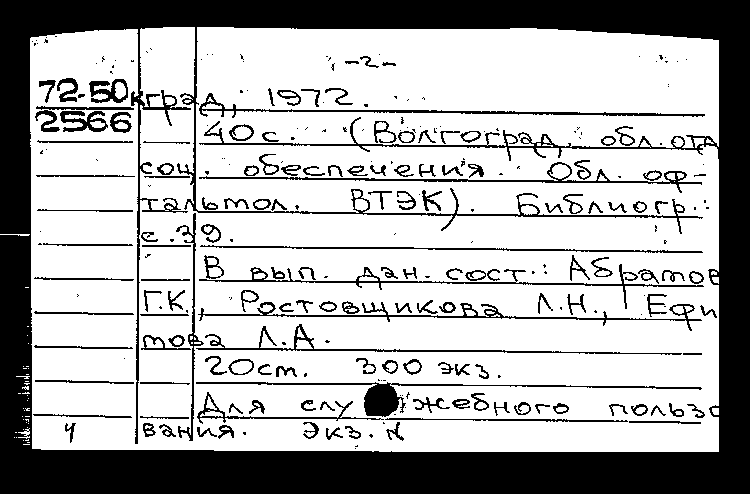 -2-
72-50 кград, 1972.
2566 40с. (Волгоград. обл. отд
соц. обеспечения. Обл. оф-
тальмол. ВТЭК). Библиогр.:
с. 39.
В вып. дан. сост.: Абрамов
Г.К., Ростовщикова Л.Н., Ефи
мова Л.А.
20см. 300 экз.
Для служебного пользо
4 вания. Экз. №